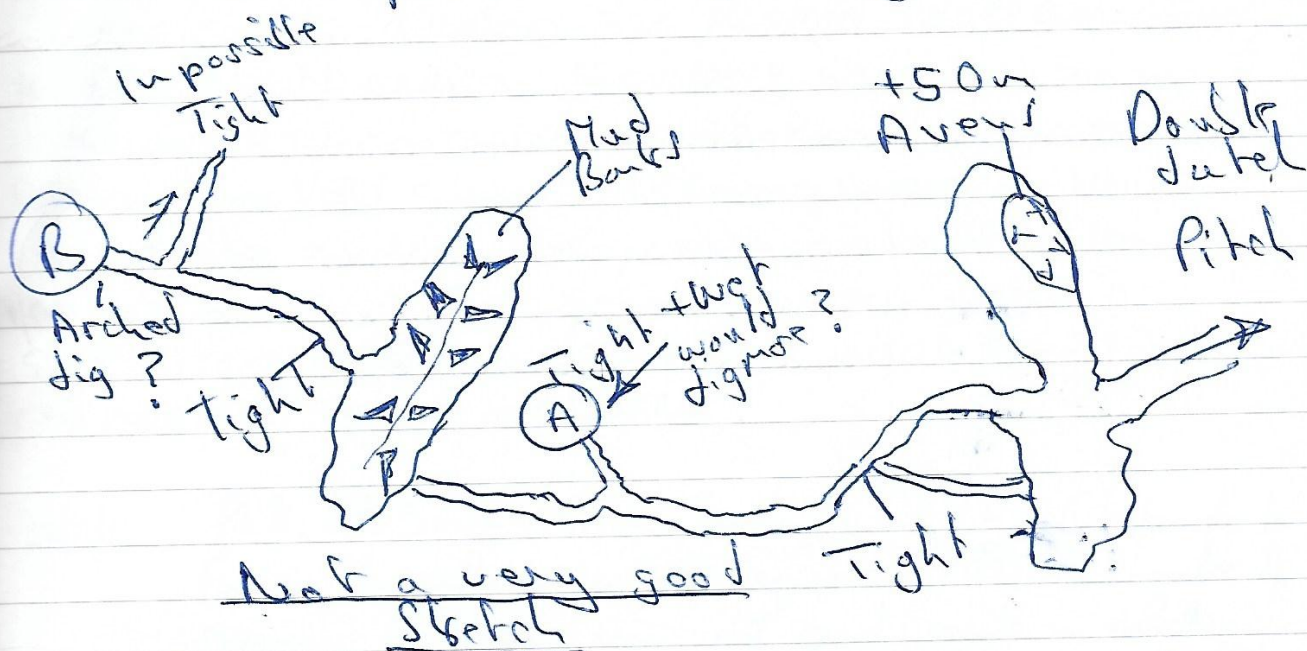 Impossible
Tight
Mud
Banks
+50m
Avens
Double
Dutch
Pitch
B
Arched
dig ?
Tight
Tight + Wet
would
dig more ?
A
Tight
Not a very good
Sketch